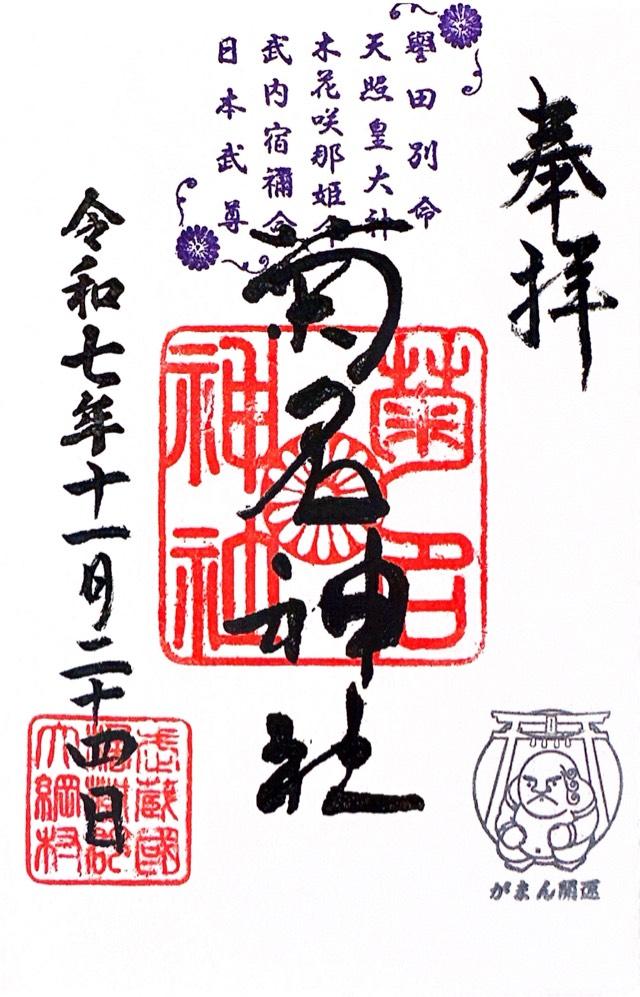 奉拝
譽田別命
天照皇大神
木花咲那姫命
武内宿禰命
日本武尊
菊名神社
菊名
神社
令和七年十一月二十四日
武蔵國
橘樹郡
大綱村
がまん開運